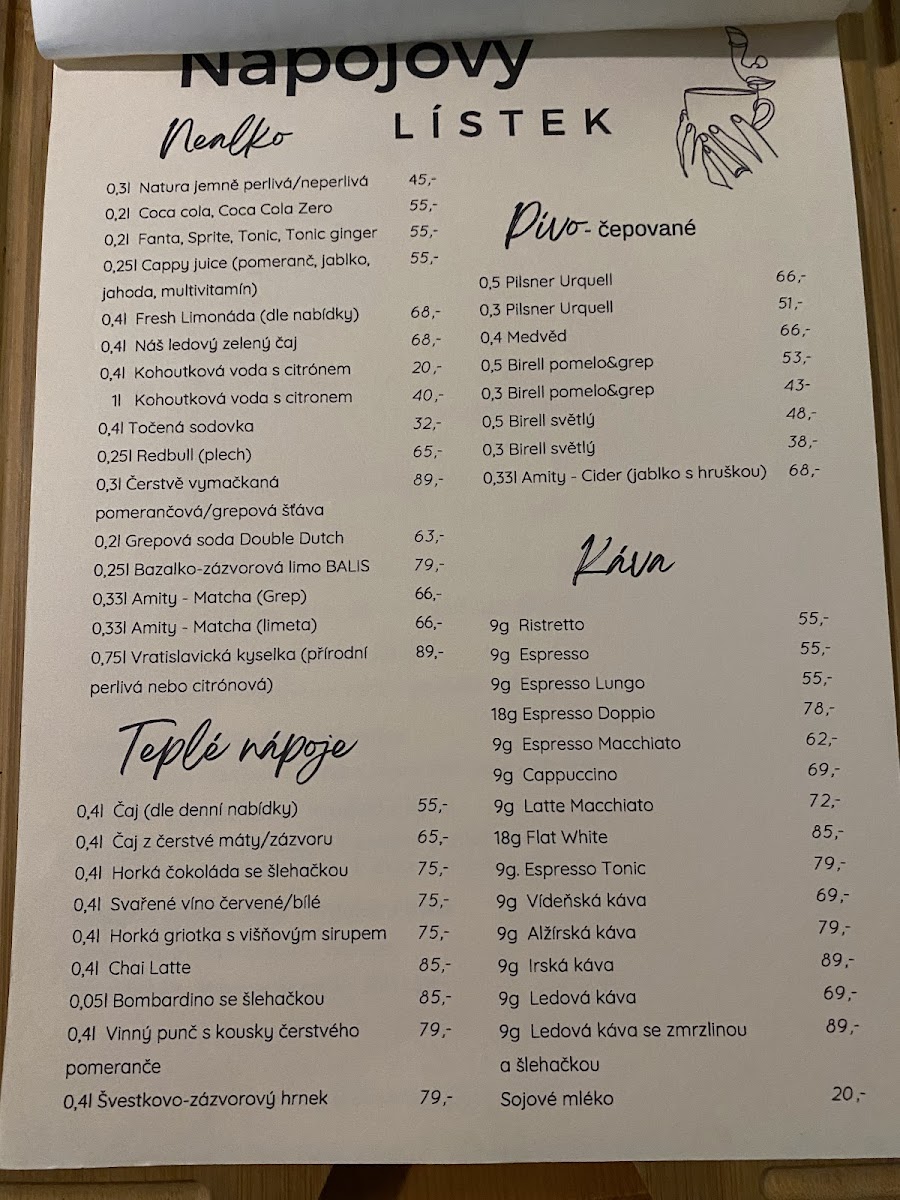 Nápojový
LÍSTEK
Nealko
0,3l Natura jemně perlivá/neperlivá 45,-
0,2l Coca cola, Coca Cola Zero 55,-
0,2l Fanta, Sprite, Tonic, Tonic ginger 55,-
0,25l Cappy juice (pomeranč, jablko, 55,-
jahoda, multivitamín)
0,4l Fresh Limonáda (dle nabídky) 68,-
0,4l Náš ledový zelený čaj 68,-
0,4l Kohoutková voda s citrónem 20,-
1l Kohoutková voda s citronem 40,-
0,4l Točená sodovka 32,-
0,25l Redbull (plech) 65,-
0,3l Čerstvě vymačkaná 89,-
pomerančová/grepová šťáva
0,2l Grepová soda Double Dutch 63,-
0,25l Bazalko-zázvorová limo BALIS 79,-
0,33l Amity - Matcha (Grep) 66,-
0,33l Amity - Matcha (limeta) 66,-
0,75l Vratislavická kyselka (přírodní 89,-
perlivá nebo citrónová)
Teplé nápoje
0,4l Čaj (dle denní nabídky) 55,-
0,4l Čaj z čerstvé máty/zázvoru 65,-
0,4l Horká čokoláda se šlehačkou 75,-
0,4l Svařené víno červené/bílé 75,-
0,4l Horká griotka s višňovým sirupem 75,-
0,4l Chai Latte 85,-
0,05l Bombardino se šlehačkou 85,-
0,4l Vinný punč s kousky čerstvého 79,-
pomeranče
0,4l Švestkovo-zázvorový hrnek 79,-
Pivo - čepované
0,5 Pilsner Urquell 66,-
0,3 Pilsner Urquell 51,-
0,4 Medvěd 66,-
0,5 Birell pomelo&grep 53,-
0,3 Birell pomelo&grep 43-
0,5 Birell světlý 48,-
0,3 Birell světlý 38,-
0,33l Amity - Cider (jablko s hruškou) 68,-
Káva
9g Ristretto 55,-
9g Espresso 55,-
9g Espresso Lungo 55,-
18g Espresso Doppio 78,-
9g Espresso Macchiato 62,-
9g Cappuccino 69,-
9g Latte Macchiato 72,-
18g Flat White 85,-
9g. Espresso Tonic 79,-
9g Vídeňská káva 69,-
9g Alžírská káva 79,-
9g Irská káva 89,-
9g Ledová káva 69,-
9g Ledová káva se zmrzlinou 89,-
a šlehačkou
Sojové mléko 20,-